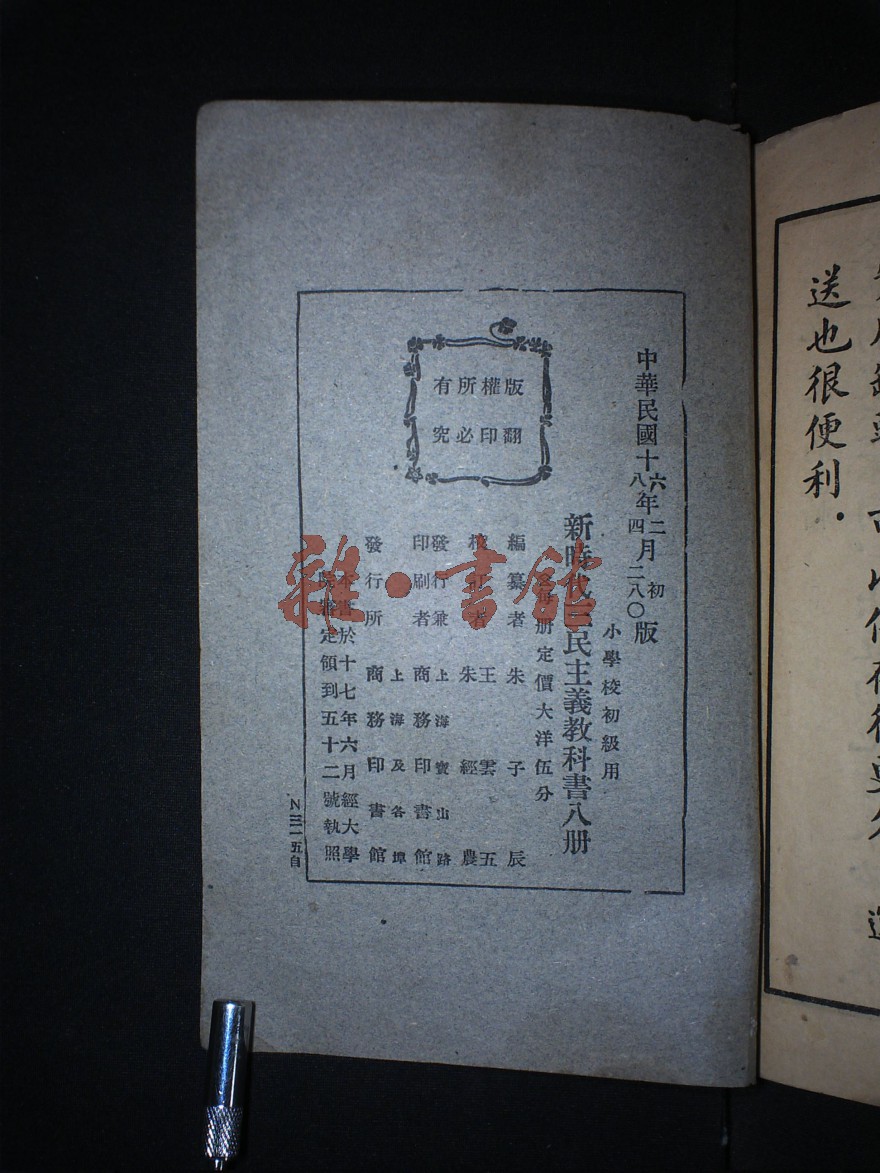 中華民國十六年二月初版
八四二八〇
小學校初級用
新時代三民主義教科書八册
每册定價大洋伍分
編纂者 朱子辰
校訂者 王雲五
朱經農
發行兼印刷者 上海寶山路 商務印書館
發行所 上海及各埠 商務印書館
本書於十七年六月經大學
院審定領到五十二號執照
版權所有
翻印必究
N三一五自
雜·書館
送也很便利.